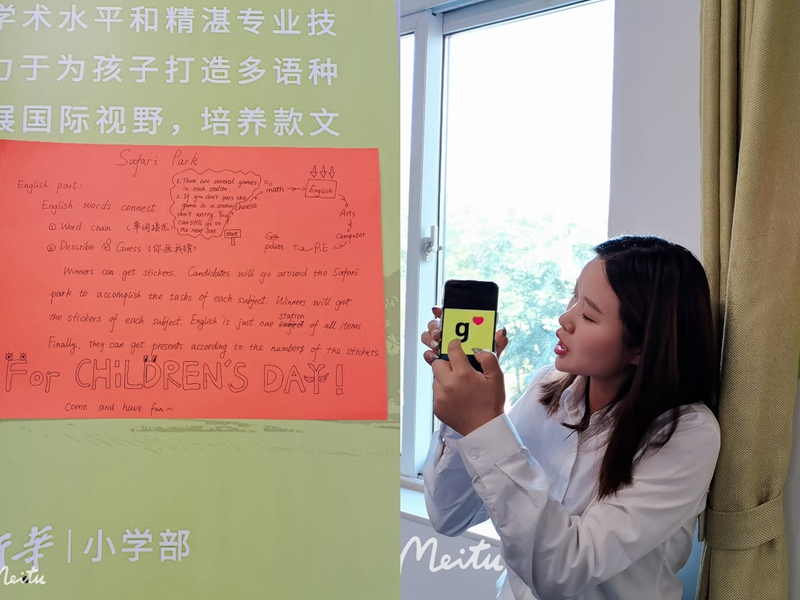 学术水平和精湛专业技
力于为孩子打造多语种
展国际视野，培养款文
Safari Park
English part:
English words connect
① Word chain （单词接龙）
② Describe & Guess （你画我猜）
1. There are several games
in each station
2. If you don't pass the
game in a station,
don't worry. You
can still go to
the next one.
start
Chinese
math
English
Arts
Computer
P.E
Gift
points
Winners can get stickers. Candidates will go around the Safari
park to accomplish the tasks of each subject. Winners will get
the stickers of each subject. English is just one station of all items.
Finally, they can get presents according to the numbers of the stickers
For CHiLDREN'S DAY!
Come and have fun~
新华|小学部
Meitu
g
Meitu